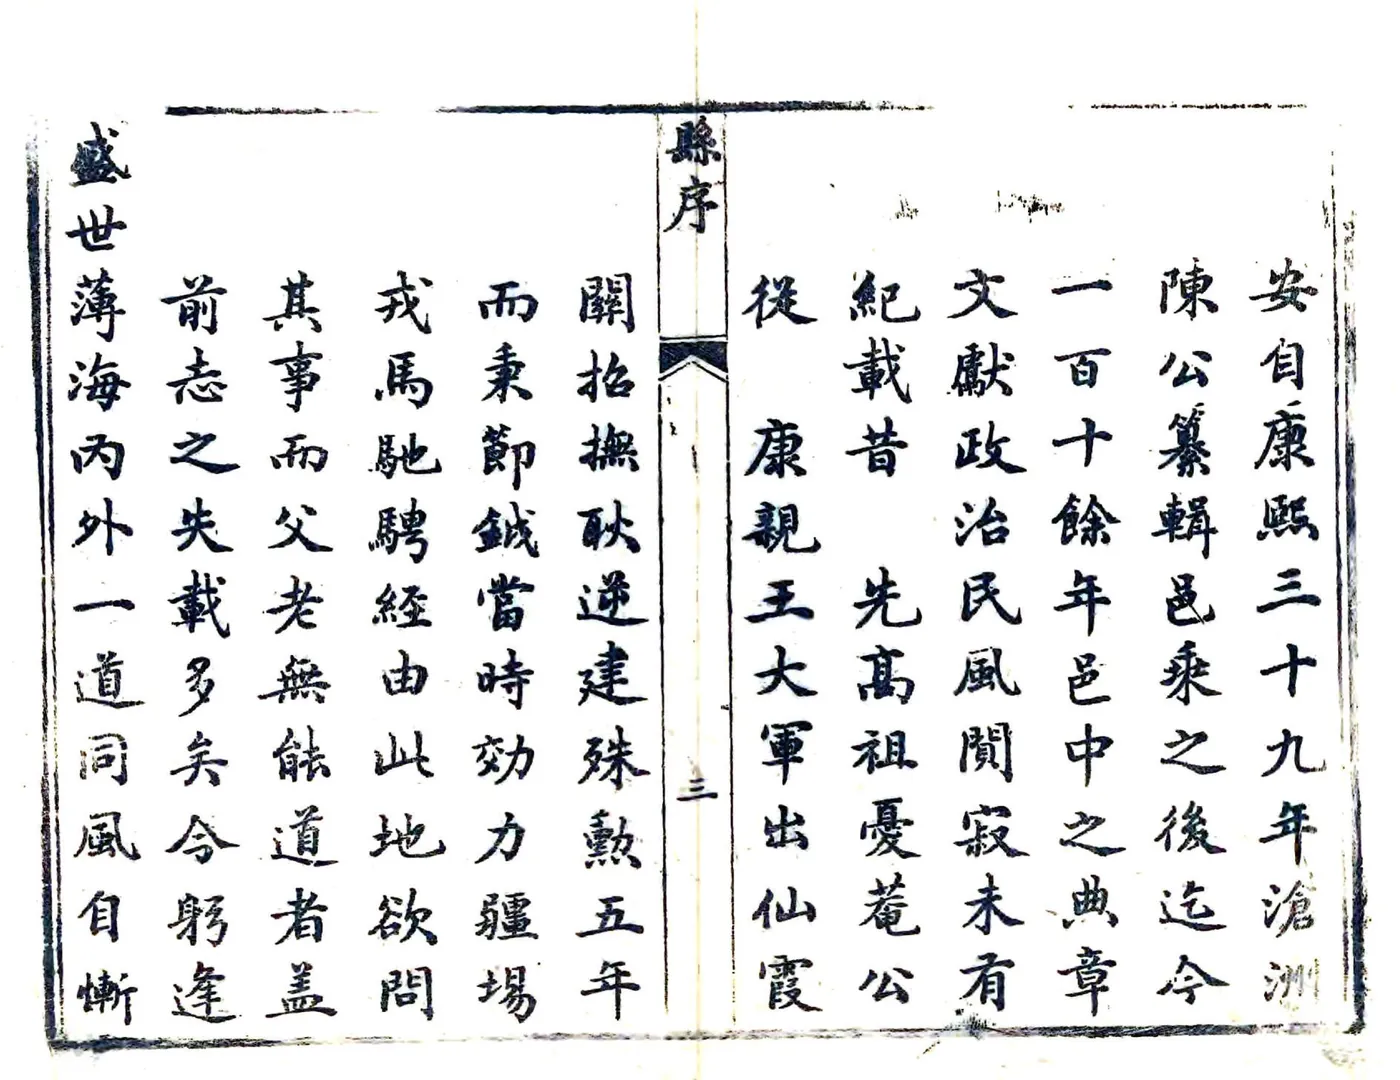 安自康熙三十九年滄洲
陳公纂輯邑乘之後迄今
一百十餘年邑中之典章
文獻政治民風闃寂未有
紀載昔　先髙祖憂菴公
從　康親王大軍出仙霞
縣序
三
關招撫耿逆建殊勲五年
而秉節鉞當時効力疆埸
戎馬馳騁経由此地欲問
其事而父老無能道者盖
前志之失載多矣今躬逢
盛世薄海內外一道同風自慚